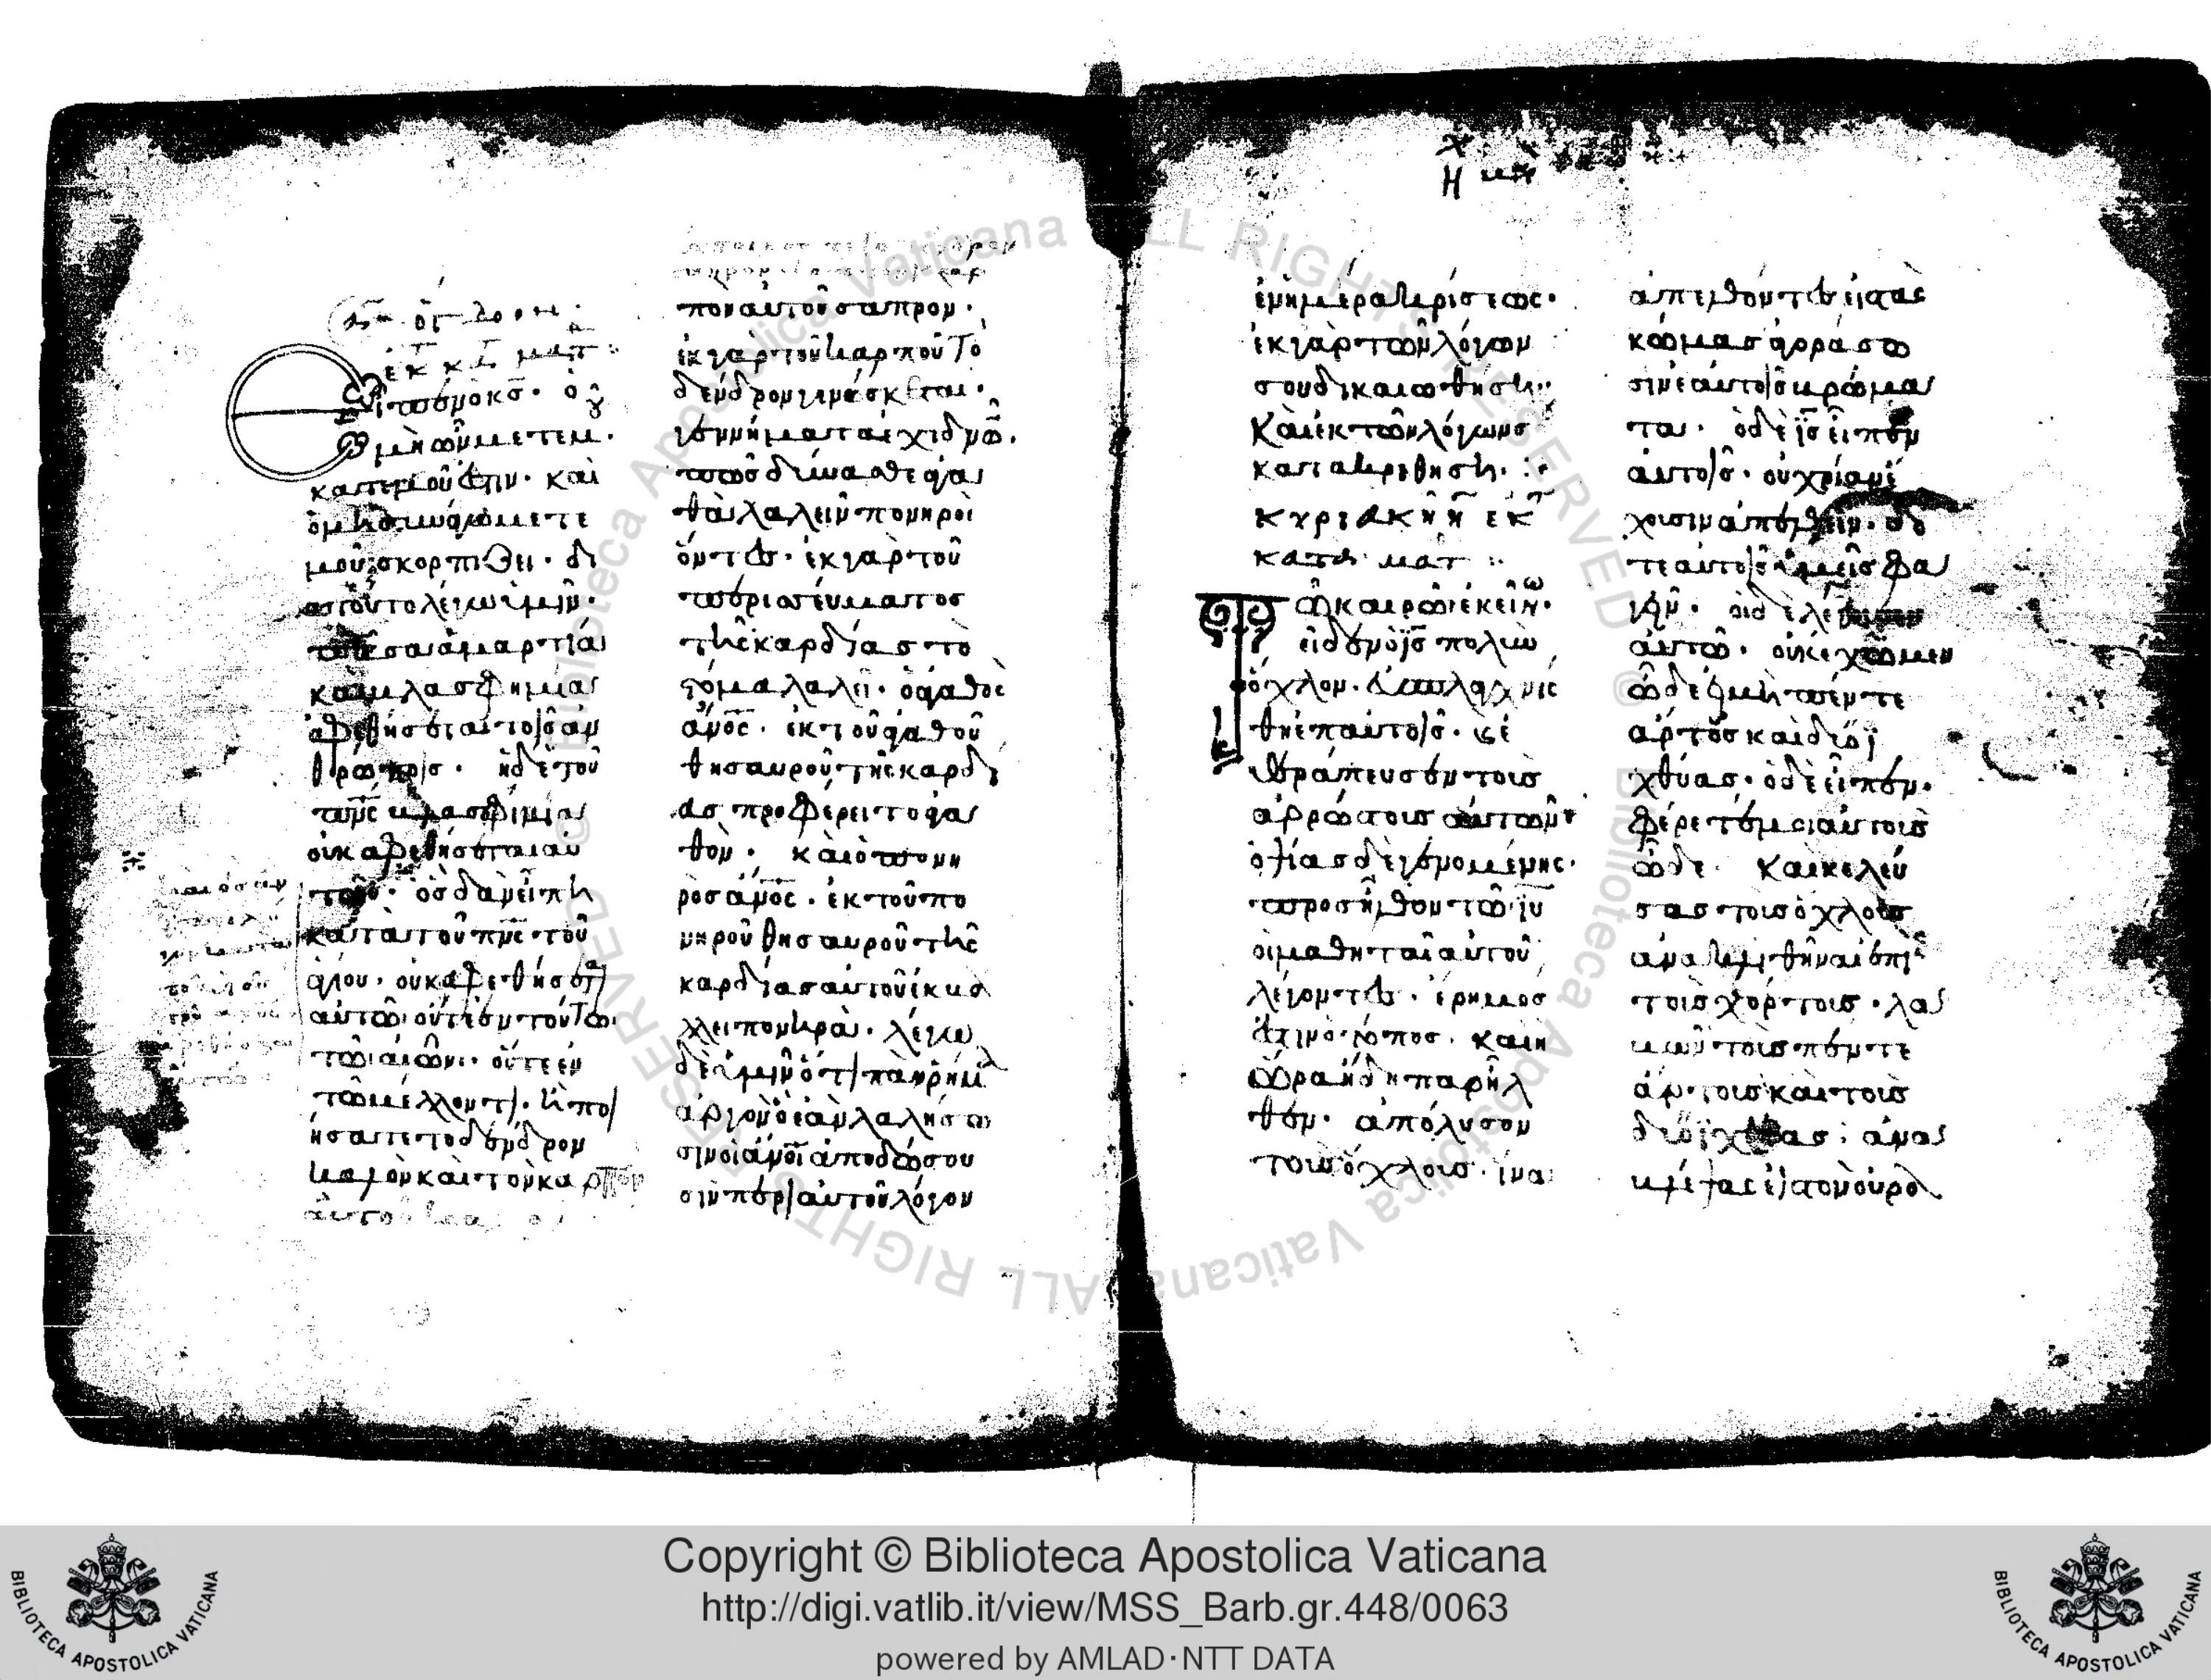 ἐκ κτ ματ
Εἶπεν ὁ κς· ὁ
μὴ ὢν μετ ἐμ
κατ ἐμοῦ ἐστιν· καὶ
ὁ μὴ συνάγων μετ ε
μοῦ σκορπίζει· δι
α τοῦτο λέγω ὑμῖν·
πᾶσα ἁμαρτία
καὶ βλασφημία
ἀφεθήσεται τοῖς αν
θρώποις· ἡ δὲ τοῦ
πνς βλασφημία
οὐκ ἀφεθήσεται αυ
τοῖς· ὃς δ ἂν εἴπη
κατὰ τοῦ πνς τοῦ
ἁγίου· οὐκ ἀφεθήσεται
αὐτῶ οὔτε ἐν τούτω
τῶ αἰῶνι· οὔτε ἐν
τῶ μέλλοντι· ἢ ποι
ήσατε τὸ δένδρον
καλὸν καὶ τὸν καρπὸν
πον αὐτοῦ σαπρον·
ἐκ γὰρ τοῦ καρποῦ τὸ
δένδρον γινώσκεται·
γεννήματα ἐχιδνῶ·
πῶς δύνασθε ἀγα
θὰ λαλεῖν πονηροὶ
ὄντες· ἐκ γὰρ τοῦ
περισσεύματος
τῆς καρδίας τὸ
στόμα λαλεῖ· ὁ ἀγαθὸς
ἀνος· ἐκ τοῦ ἀγαθοῦ
θησαυροῦ τῆς καρδι
ας προφέρει τὸ ἀγα
θον· καὶ ὁ πονη
ρὸς ἀνος· ἐκ τοῦ πο
νηροῦ θησαυροῦ τῆς
καρδίας αὐτοῦ ἐκβα
λλει πονηρὰ· λέγω
δὲ ὑμῖν ὅτι πὰν ῥῆμα
ἀργὸν ὃ ἐὰν λαλήσω
σιν οἱ ἀνοι ἀποδώσου
σιν περὶ αὐτοῦ λόγον
ἐν ἡμέρα κρίσεως·
ἐκ γὰρ τῶν λόγων
σου δικαιωθήση·
καὶ ἐκ τῶν λόγων σ
κατακριθήση·
κυριακὴ η ἐκ
κατὰ ματ
Τῶ καιρῶ ἐκείνω·
εἶδεν ὁ ις πολὺν
ὄχλον· καὶ ἐσπλαγχνίς
θη ἐπ αὐτοῖς· καὶ ἐ
θεράπευσεν τοὺς
ἀρρώστους αὐτῶν·
ὀψίας δὲ γενομένης·
προσῆλθον τῶ ιυ
οἱ μαθηταὶ αὐτοῦ
λέγοντες· ἔρημος
ἐστιν ὁ τόπος· καὶ η
ὥρα ἤδη παρῆλ
θεν· ἀπόλυσον
τοὺς ὄχλους· ἵνα
ἀπελθόντες εἰς τὰς
κώμας ἀγοράσω
σιν ἑαυτοῖς βρώμα
τα· ὁ δὲ ις εἶπεν
αὐτοῖς· οὐ χρίαν ἔ
χουσιν ἀπελθεῖν· δο
τε αὐτοῖς ὑμεῖς φα
γεῖν· οἱ δὲ λέγουσιν
αὐτῶ· οὐκ ἔχωμεν
ὧδε εἰ μὴ πέντε
ἄρτους καὶ δύο ἰ
χθύας· ὁ δὲ εἶπεν·
φέρετέ μοι αὐτοὺς
ὧδε· καὶ κελεύ
σας τοὺς ὄχλους
ἀνακλιθῆναι ἐπὶ
τοὺς χόρτους· λα
βὼν τοὺς πέντε
ἄρτους καὶ τοὺς
δύο ἰχθύας· ἀνα
βλέψας εἰς τὸν οὐρα
Copyright © Biblioteca Apostolica Vaticana
http://digi.vatlib.it/view/MSS_Barb.gr.448/0063
powered by AMLAD·NTT DATA